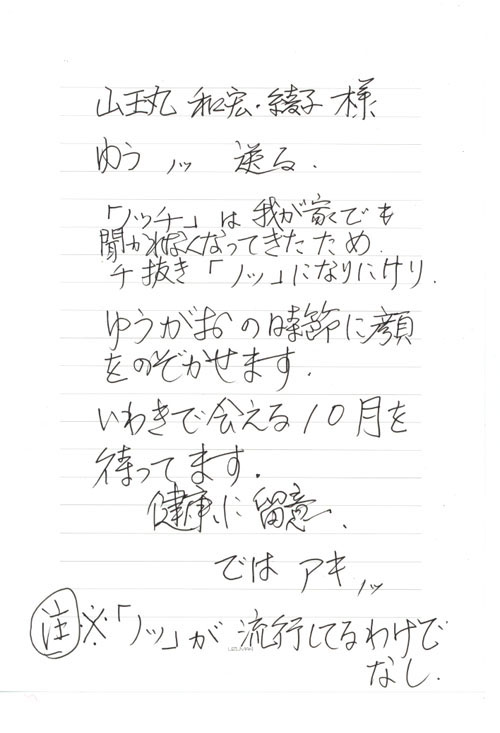 山王丸 和宏・綾子 様
ゆう ノッ 送る.
「ノッチ」は我が家でも
聞かれなくなってきたため.
チ抜き「ノッ」になりにけり.
ゆうがおの時節に顔
をのぞかせます.
いわきで会える10月を
待ってます.
健康に留意.
では アキノッ
注※「ノッ」が流行してるわけで
なし.